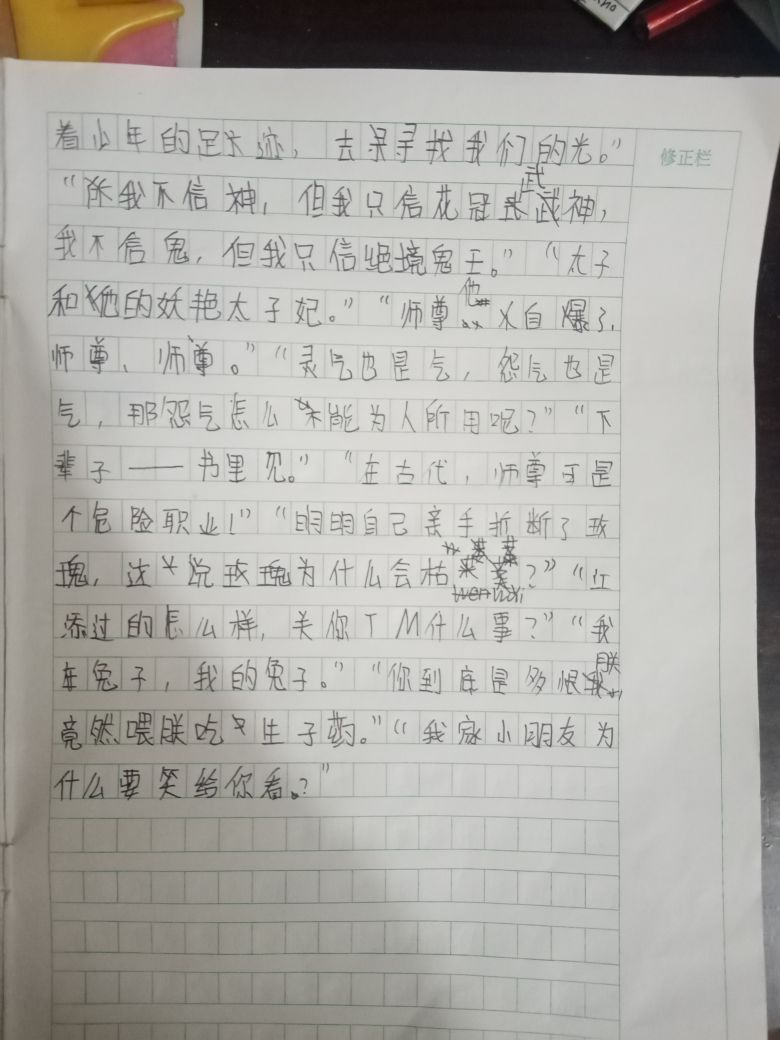 着少年的足迹，去寻找我们的光。”
修正栏
“我不信神，但我只信花冠武神，
我不信鬼，但我只信绝境鬼王。”“太子
和他的妖艳太子妃。”“师尊他又自爆了，
师尊、师尊。”“灵气也是气，怨气也是
气，那怨气怎么不能为人所用呢？”“下
辈子——书里见。”“在古代，师尊可是
个危险职业！”“明明自己亲手折断了玫
瑰，这说玫瑰为什么会枯萎？”“江
添过的怎么样，关你TM什么事？”“我
在兔子，我的兔子。”“你到底是多恨朕
竟然喂朕吃生子药。”“我家小朋友为
什么要笑给你看。？”